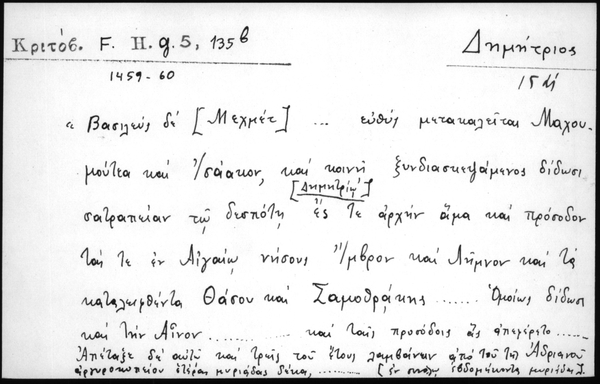 Κριτόβ. F. H. g. 5, 135 b
Δημήτριος
1459-60
15
" Βασιλεύς δέ [Μεχμέτ] ... εὐθύς μετακαλεῖται Μαχου-
μούτεα καί Ἰσάακον, καί κοινῇ ξυνδιασκεψάμενος δίδωσι
[Δημητρίῳ]
σατραπείαν τῷ δεσπότῃ ἐς τε ἀρχήν ἅμα καί πρόσοδον
τάς τε ἐν Αἰγαίῳ νήσους Ἴμβρον καί Λῆμνον καί τά
καταλειφθέντα Θάσου καί Σαμοθράκης ....... Ὁμοίως δίδωσι
καί τήν Αἶνον ........ καί ταῖς προσόδοις ἅς ἀπεφέρετο ........
Ἀπέταξε δέ αὐτῷ καί τρεῖς τοῦ ἔτους λαμβάνειν ἀπό τοῦ τῆς Ἀδριανοῦ
ἀργυροκοπείου ἑτέρας μυριάδας δέκα, ........ [ἐν ἑβδομήκοντα μυριάδας].